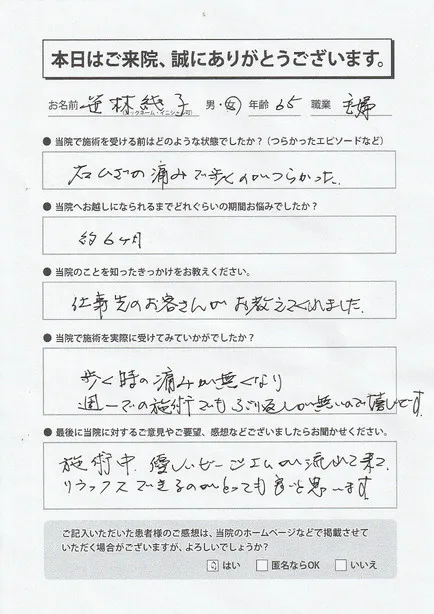 本日はご来院、誠にありがとうございます。
お名前 笹林純子 男・女 年齢 65 職業 主婦
(ニックネーム・イニシャル可)
● 当院で施術を受ける前はどのような状態でしたか？（つらかったエピソードなど）
右ひざの痛みで歩くのがつらかった。
● 当院へお越しになられるまでどれぐらいの期間お悩みでしたか？
約6ヶ月
● 当院のことを知ったきっかけをお教えください。
仕事先のお客さんがお教えてくれました。
● 当院で施術を実際に受けてみていかがでしたか？
歩く時の痛みが無くなり
週一での施術でもぶり返しが無いので嬉しいです。
● 最後に当院に対するご意見やご要望、感想などございましたらお聞かせください。
施術中、優しい が流れて来て、
リラックスできるのがとても良いと思います
ご記入いただいた患者様のご感想は、当院のホームページなどで掲載させて
いただく場合がございますが、よろしいでしょうか？
はい 匿名ならOK いいえ